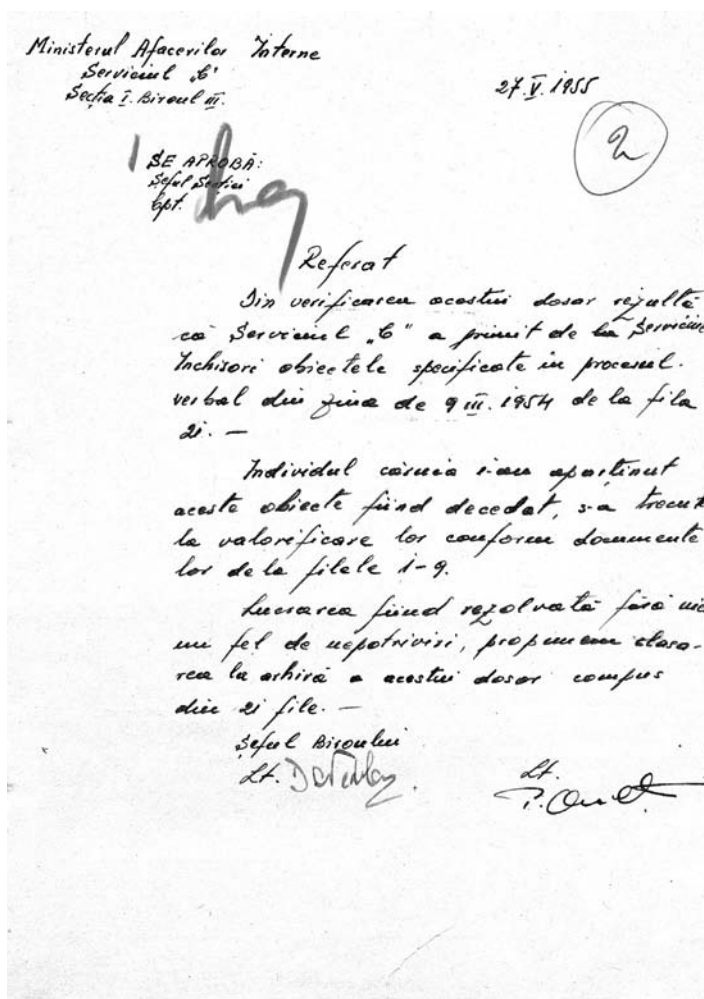 Ministerul Afacerilor Interne
Serviciul „C"
Secția I. Biroul III.
27.V.1955
2
SE APROBĂ:
Șeful Secției
Cpt.
Referat
Din verificarea acestui dosar rezultă
că Serviciul „C" a primit de la Serviciul
Închisori obiectele specificate în procesul-
verbal din ziua de 9 III. 1954 de la fila
21. —
Individul căruia i-au aparținut
aceste obiecte fiind decedat, s-a trecut
la valorificare lor conform documente
lor de la filele 1-9.
Lucrarea fiind rezolvată fără nic
un fel de nepotriviri, propunem clasa-
rea la arhivă a acestui dosar compus
din 21 file. —
Șeful Biroului
Lt.
Lt.